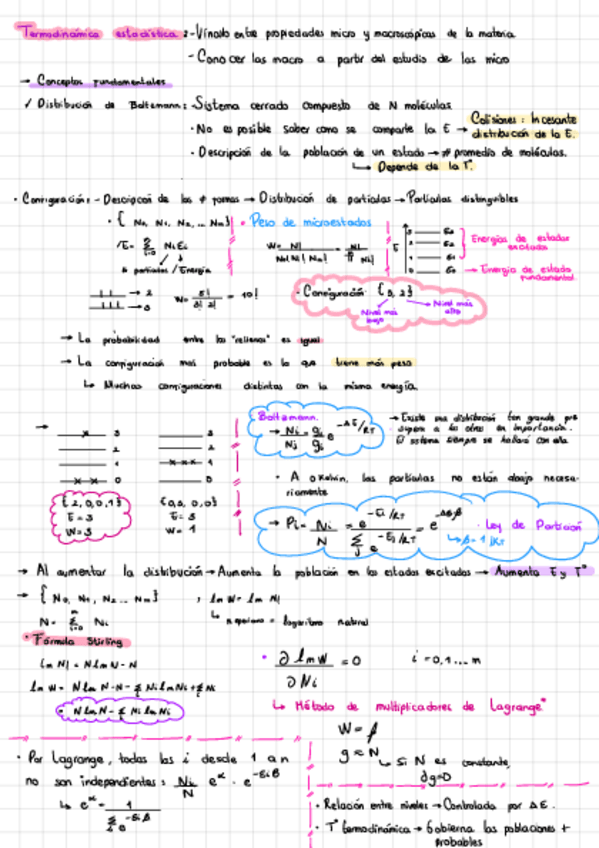 Termodinámica estadística: - Vínculo entre propiedades micro y macroscópicas de la materia.
- Conocer las macro a partir del estudio de las micro
→ Conceptos fundamentales
✓ Distribución de Boltzmann: · Sistema cerrado compuesto de N moléculas.
· No es posible saber como se comparte la E → Colisiones: Incesante distribución de la E.
· Descripción de la población de un estado → # promedio de moléculas.
↳ Depende de la Tª.
· Configuración: - Descripción de las # formas → Distribución de partículas → Partículas distinguibles
· { N₀, N₁, N₂, ... Nm}
· Peso de microestados
E = Σ Ni Ei
# partículas / Energía
W = N! / N₀! N₁! N₂! = N! / Π Ni!
E
3 E₃
2 E₂
1 E₁
0 E₀
Energías de estados excitados
→ Energía de estado fundamental
→ 2
→ 3
W = 5! / 3! 2! = 10!
· Configuración { 3, 2}
Nivel más bajo
Nivel más alto
→ La probabilidad entre los "rellenos" es igual
→ La configuración mas probable es la que tiene más peso
↳ Muchas configuraciones distintas con la misma energía.
3
2
1
0
3
2
1
0
{ 2, 0, 0, 1}
E = 3
W = 3
{0,3, 0,0}
E = 3
W = 1
Boltzmann.
→ Ni / Nj = gi / gj e^-ΔE/KT
→ Existe una distribución tan grande que
a las otras en importancia.
El sistema siempre se hallará con ella.
· A 0 Kelvin, las partículas no están abajo necesariamente
→ Pi = Ni / N = e^-Ei/KT / Σj e^-Ej/KT = e^-ΔEβ
· Ley de Partición
↳ β = 1/KT
→ Al aumentar la distribución → Aumenta la población en los estados excitados → Aumenta E y Tª
→ { N₀, N₁, N₂ ... Nm} , ln W = ln N!
N = Σ Ni
↳ neperiano = logaritmo natural
· Fórmula Stirling
ln N! = N ln N - N
ln W = N ln N - N - Σ Ni ln Ni + Σ Ni
= N ln N - Σ Ni ln Ni
· ∂ ln W / ∂ Ni = 0 i = 0,1 ... m
↳ Método de multiplicadores de Lagrange"
W = f
g = N
↳ Si N es constante,
∂g = 0
· Por Lagrange, todas las i desde 1 a n
no son independientes: Ni / N e^α · e^-Eiβ
↳ e^α = 1 / Σ e^-Eiβ
· Relación entre niveles → Controlada por ΔE.
· Tª termodinámica → Gobierna las poblaciones + probables